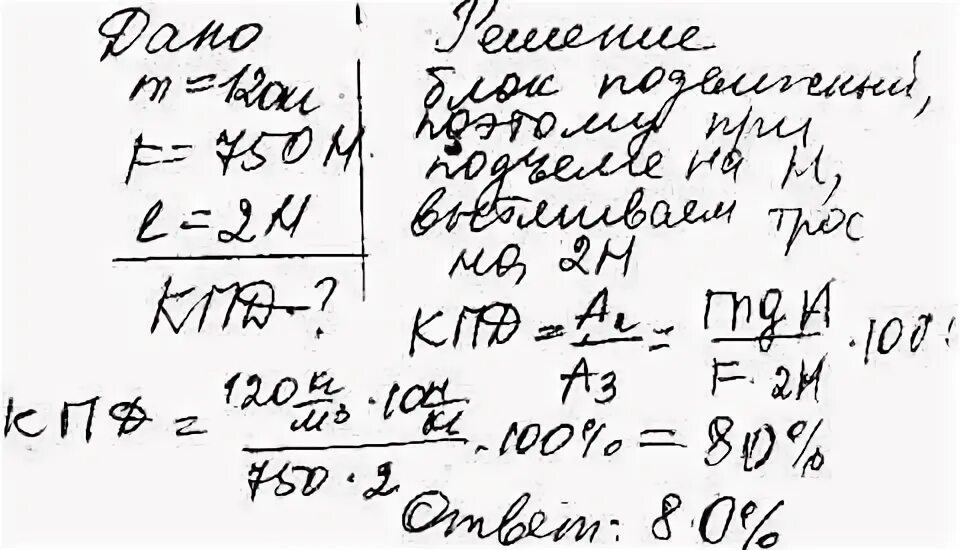 Дано
m=120кг
F=750Н.
l=2H
КПД-?
Решение
блок подвижный,
поэтому при
подъеме на H,
вытягиваем трос
на 2H
КПД = A₂/A₃ = mgH/(F·2H) ·100%
КПД = (120 кг/м³ · 10 н/кг)/(750·2) ·100% = 80%
Ответ: 80%